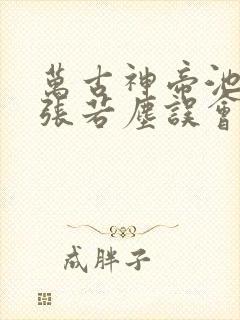 萬古神帝池
張若塵誤會
成胖子